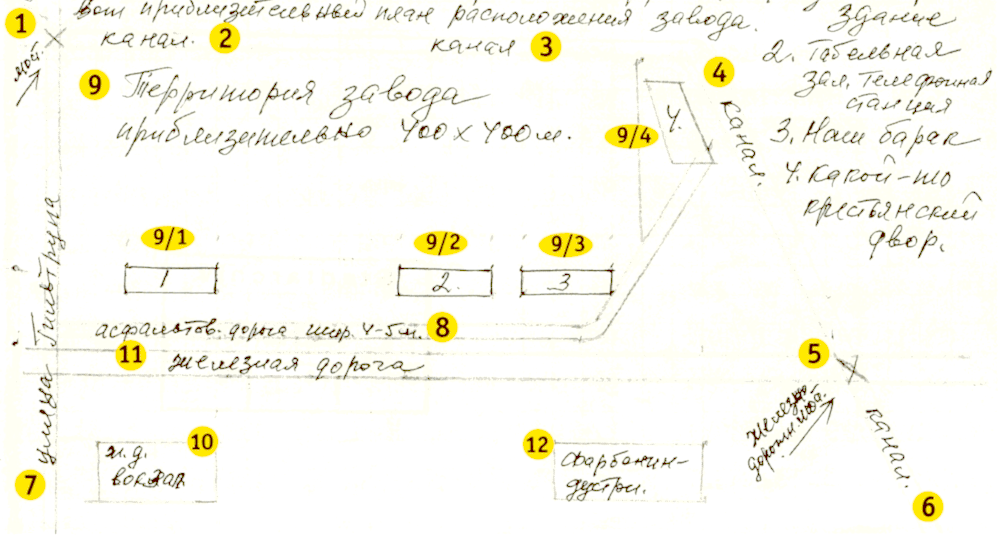 Вот приблизительный план расположения завода.
1
канал.
2
канал
3
мой.
здание
2. Табельная
зал, телефонная
станция
3. Наш барак
4. какой-то
крестьянский
двор.
9 Территория завода
приблизительно 400 х 400 м.
4
4.
9/4
канал.
9/1
9/2
9/3
1
2.
3
асфальтов. дорога шир. 4-5 м.
8
11
железная дорога
5
улица
7
10
ж.д.
вокзал
12
фарбенин-
дустри.
железно
дорожн. мой.
канал.
6